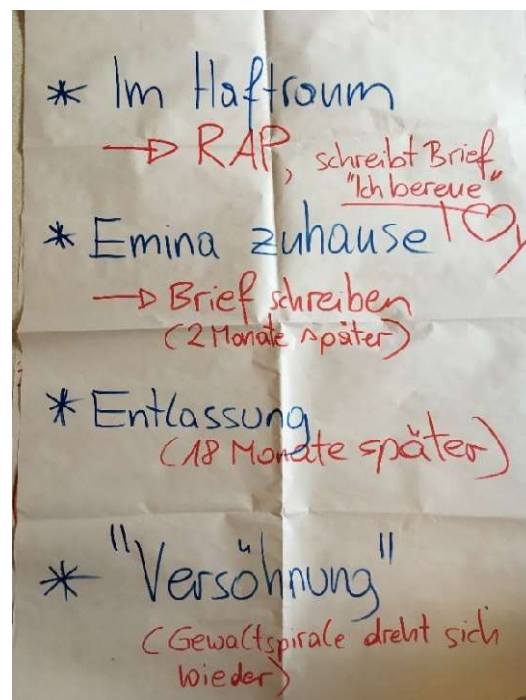 * Im Haftraum
→ RAP, schreibt Brief
"Ich bereue"
* Emina zuhause
→ Brief schreiben
(2 Monate später)
* Entlassung
(18 Monate später)
* "Versöhnung"
(Gewaltspirale dreht sich
wieder)